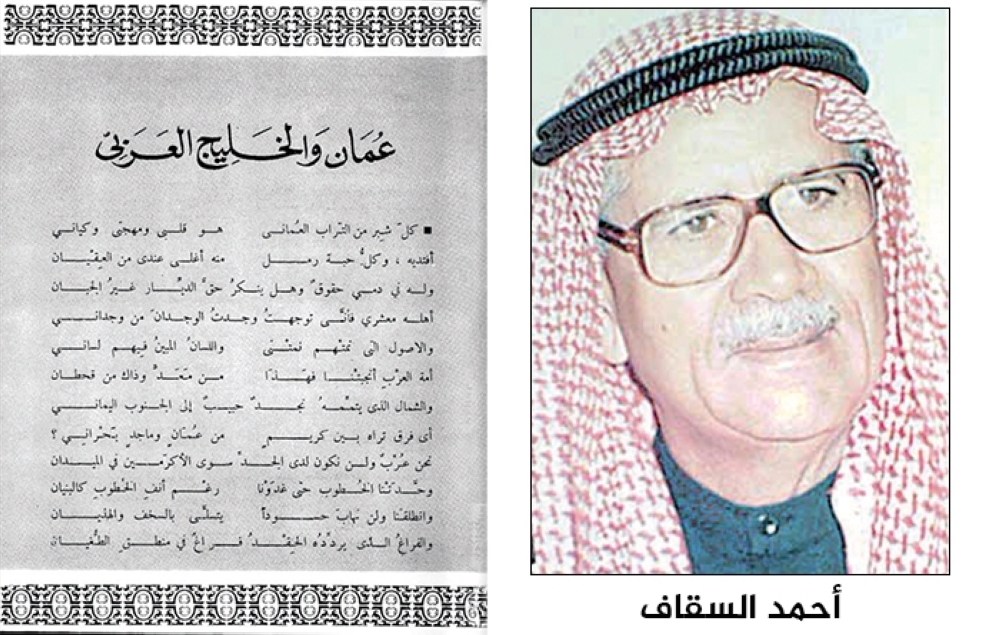 عُمَان وَالخَليج العَرَبيّ
■ كلّ شبر من التراب العماني هو قلبي ومهجتي وكياني
أفتديه ، وكلُّ حبة رمل منه أغلى عندى من العِقْيان
وله في دمي حقوقٌ وهل ينكرُ حقَّ الديار غيرُ الجبان
أهله معشري فأنّى توجهتُ وجدتُ الوجدانَ من وجداني
والاصول التى نمتهم نمتنى واللسانُ المبينُ فيهم لساني
أمة العرْبِ أنجبتْنا فهذا من مَعَدّ وذاك من قحطان
والشمال الذى يتممهُ نجدٌ حبيبٌ إلى الجنوب اليماني
أى فرق تراه بين كريمٍ من عُمَان وماجدٍ بَحْراني ؟
نحن عُرْبٌ ولن نكون لدى الجدّ سوى الأكرَمين في الميدان
وحَّدَتْنا الخطوب حتى غدَوْنا رغم أنف الخطوب كالبنيان
وانطلقنا ولن نهابَ حسوداً يتسلَّى بالسخف والهذيان
والفراغُ الذى يردّدُه الحِقْدُ فراغٌ في منطق الطُّغْيان
أحمد السقاف